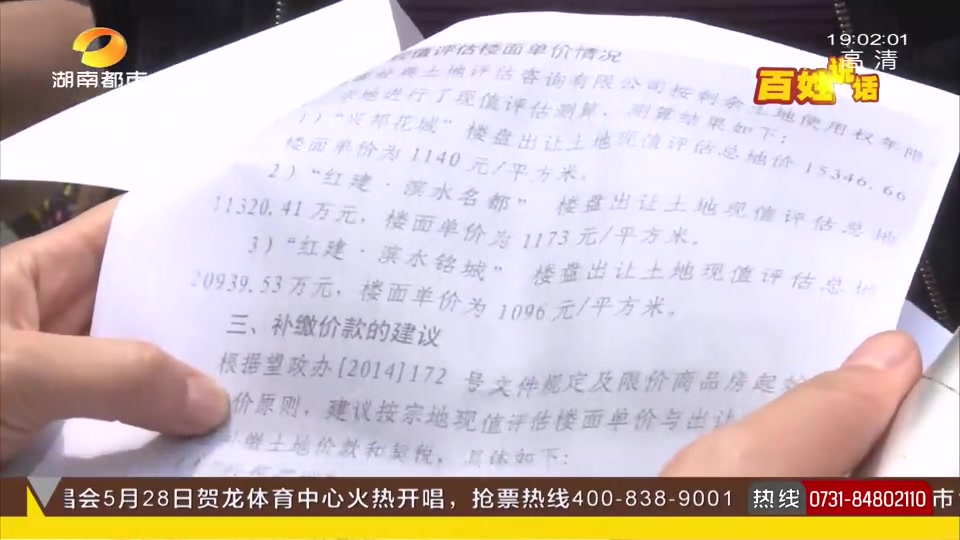 湖南都市
19:02:01
高清
百姓说话
值评估楼面单价情况
土地评估咨询有限公司按剩余土地使用权年限
地进行了现值评估测算，测算结果如下：
1）“兴邦花城”楼盘出让土地现值评估总地价15346.66
楼面单价为1140元/平方米。
2）“红建·滨水名都”楼盘出让土地现值评估总地
11320.41万元，楼面单价为1173元/平方米。
3）“红建·滨水铭城”楼盘出让土地现值评估总地
20939.53万元，楼面单价为1096元/平方米。
三、补缴价款的建议
根据望政办[2014]172号文件规定及限价商品房起始
价原则，建议按宗地现值评估楼面单价与出让
缴土地价款和契税，具体如下：
唱会5月28日贺龙体育中心火热开唱，抢票热线400-838-9001
热线 0731-84802110 市